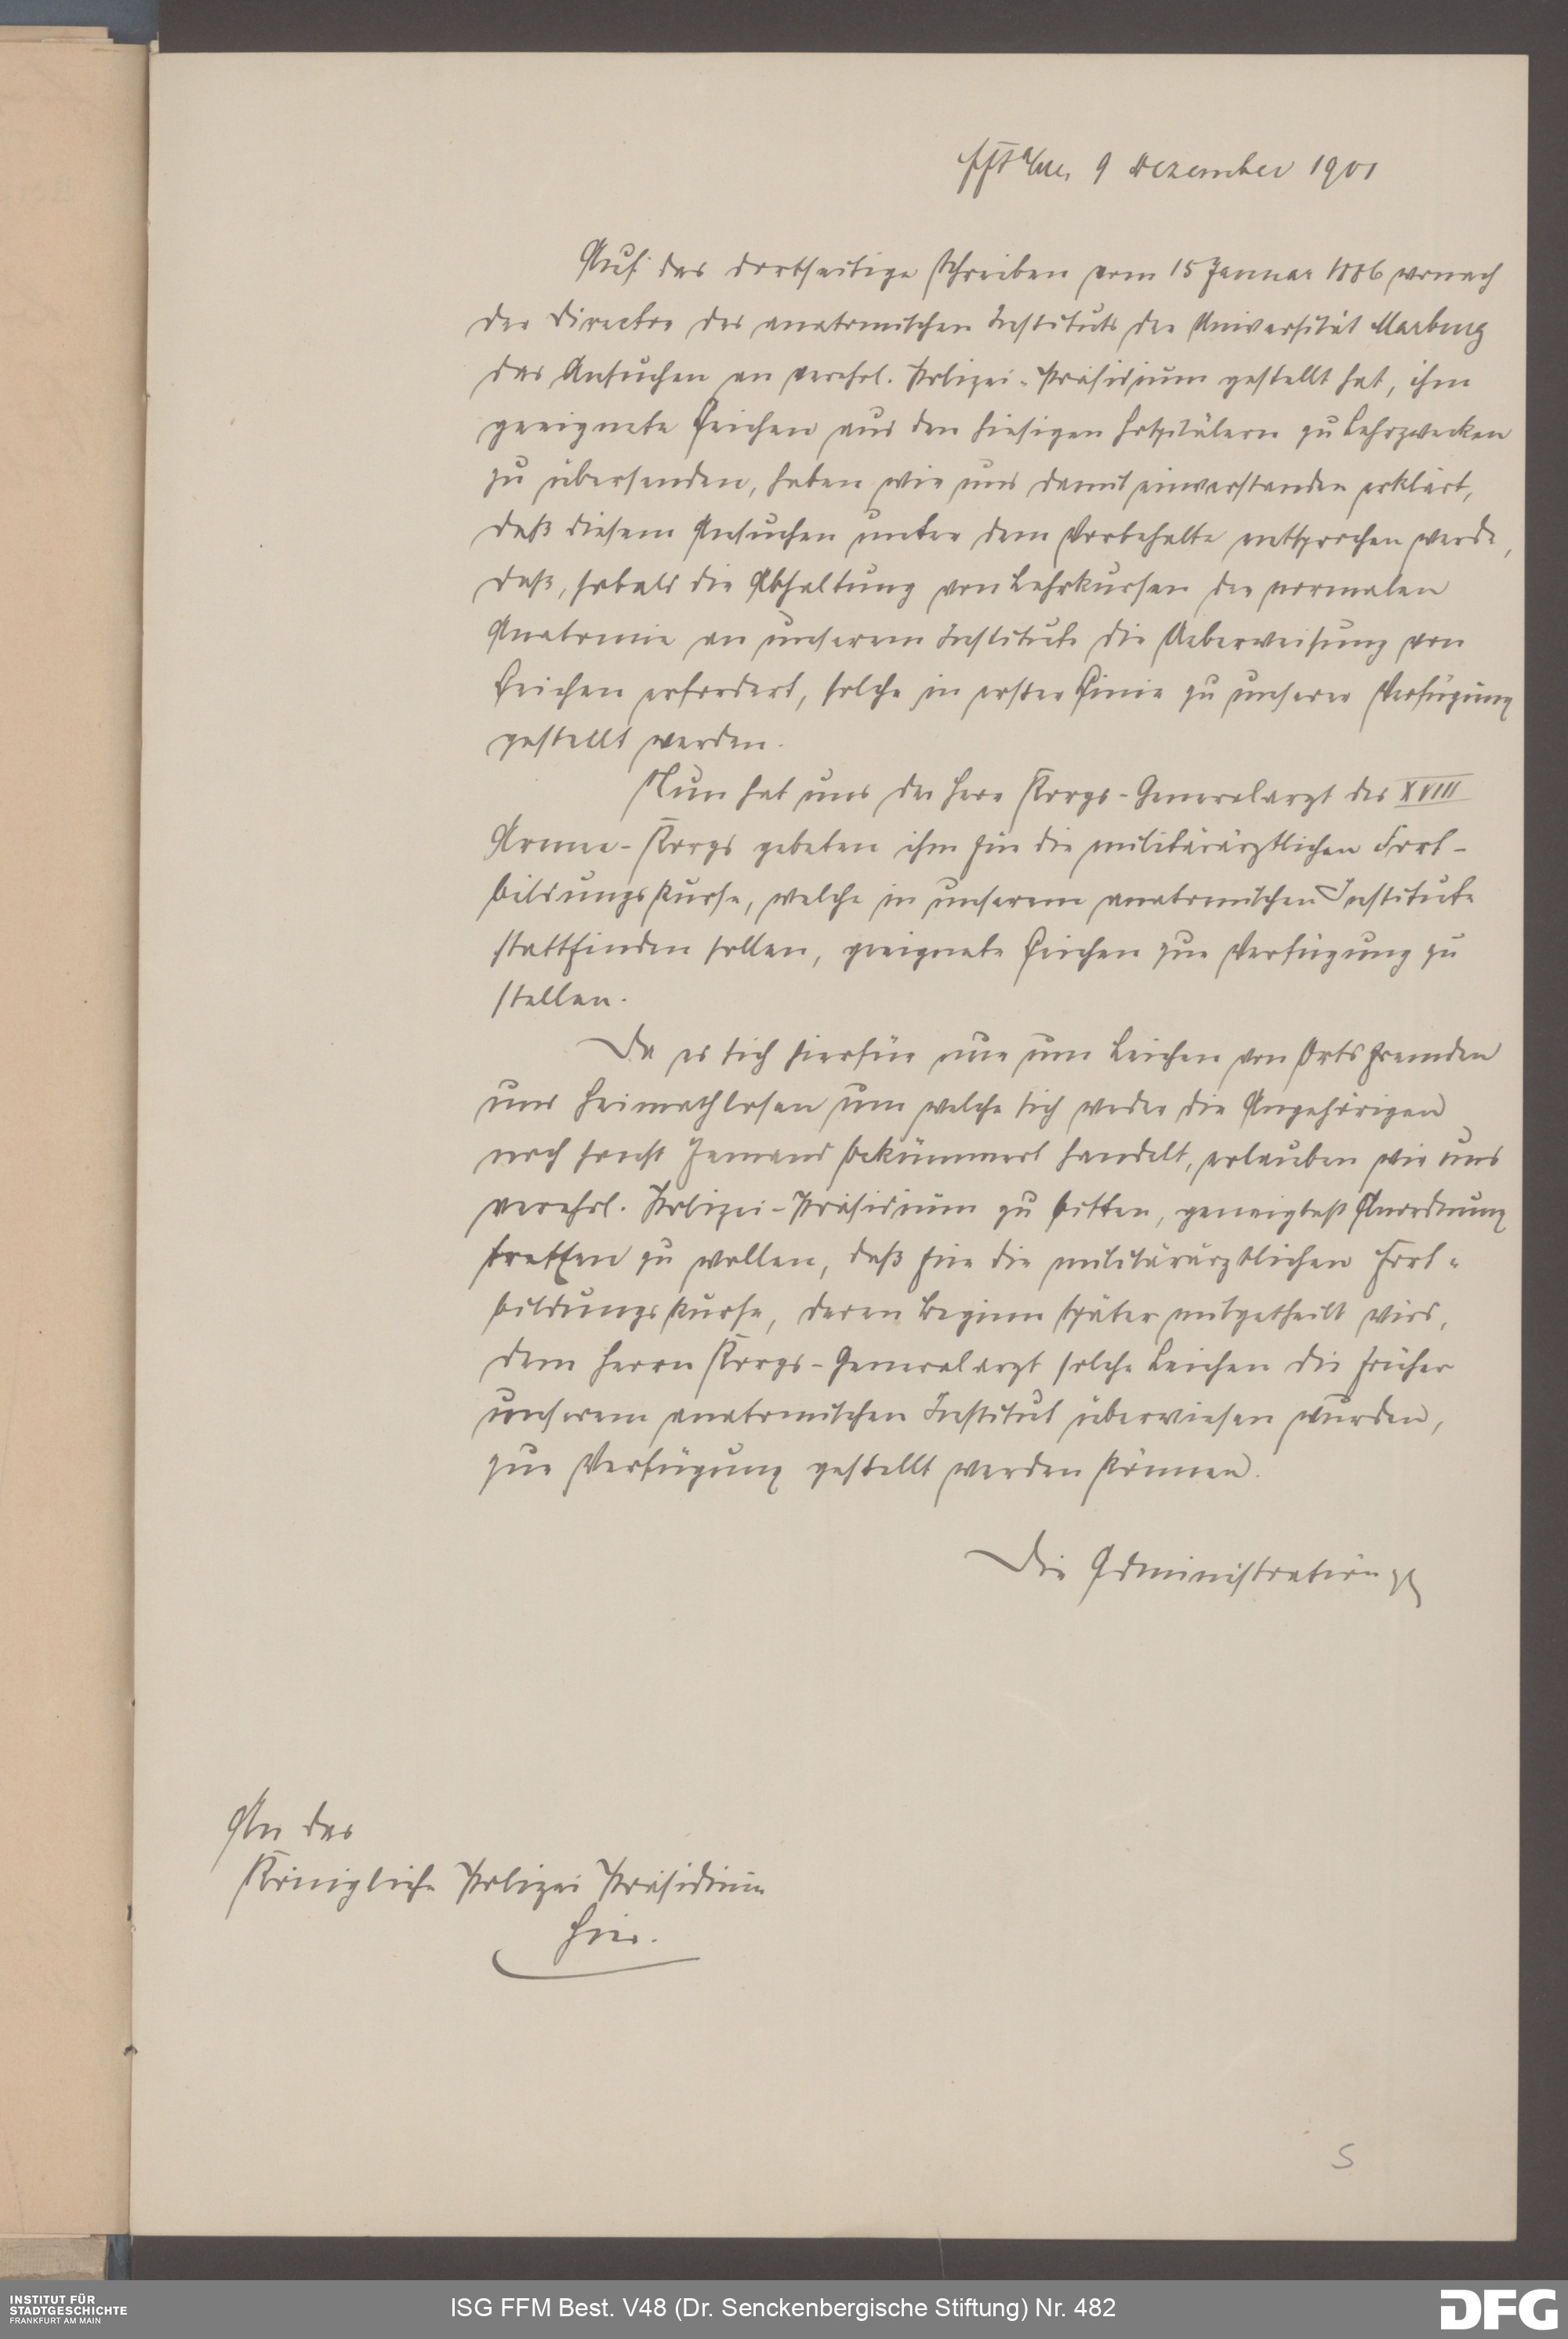 Fft a/M. 9 Dezember 1901
Auf das dortseitige Schreiben vom 15 Januar 1886 wonach
der Director des anatomischen Instituts der Universität Marburg
das Ansuchen an verehrl. Polizei-Präsidium gestellt hat, ihm
geeignete Leichen aus den hiesigen Hospitälern zu Lehrzwecken
zu übersenden, haben wir uns damit einverstanden erklärt,
daß diesem Ansuchen unter dem Vorbehalte entsprochen werde,
daß, sobald die Abhaltung von Lehrkursen der normalen
Anatomie an unserem Institute die Ueberweisung von
Leichen erfordert, solche in erster Linie zu unserer Verfügung
gestellt werden.
Nun hat uns der Herr Korps-Generalarzt des XVIII
Armee-Korps gebeten ihm für die militärärztlichen Fort-
bildungskurse, welche in unserem anatomischen Institute
stattfinden sollen, geeignete Leichen zur Verfügung zu
stellen.
Da es sich hierfür nur um Leichen von Ortsfremden
und Heimathlosen um welche sich weder die Angehörigen
noch sonst Jemand bekümmert handelt, erlauben wir uns
verehrl. Polizei-Präsidium zu bitten, geneigtest Anordnung
treffen zu wollen, daß für die militärärztlichen Fort-
bildungskurse, deren Beginn später mitgetheilt wird,
dem Herrn Korps-Generalarzt solche Leichen die früher
unserem anatomischen Institut überwiesen wurden,
zur Verfügung gestellt werden können.
Die Administration
An das
Königliche Polizei Präsidium
Hier.
5
INSTITUT FÜR
STADTGESCHICHTE
FRANKFURT AM MAIN
ISG FFM Best. V48 (Dr. Senckenbergische Stiftung) Nr. 482
DFG